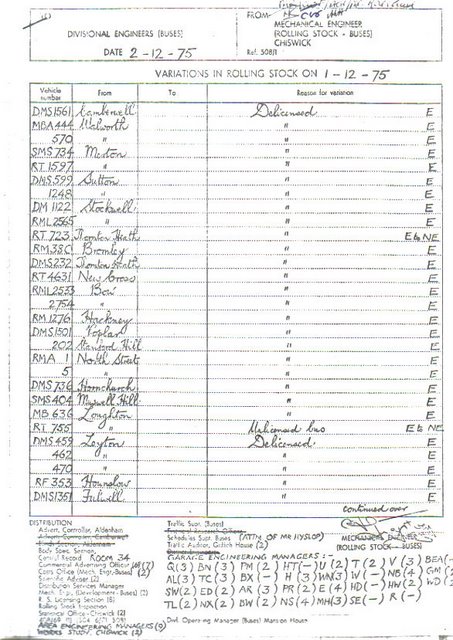 (1)
FROM
DIVISIONAL ENGINEERS (BUSES)
MECHANICAL ENGINEER
(ROLLING STOCK - BUSES)
CHISWICK
DATE 2-12-75
Ref. 508/1
VARIATIONS IN ROLLING STOCK ON 1-12-75
Vehicle number From To Reason for variation
DMS1561 Camberwell Delicensed E
MBA444 Walworth " E
570 " " E
SMS734 Merton " E
RT1597 " " E
DMS599 Sutton " E
1248 " " E
DM1122 Stockwell " E
RML2565 " " E
RT723 Thornton Heath " E to NE
RM380 Bromley " E
DMS232 Thornton Heath " E
RT4631 New Cross " E
RML2533 Bow " E
2754 " " E
RM1276 Hackney " E
DMS1501 Poplar " E
202 Stamford Hill " E
RMA 1 North Street " E
5 " " E
DMS736 Hornchurch " E
SMS404 Muswell Hill " E
MB636 Loughton " E
RT755 " Unlicensed bus E to NE
DMS459 Leyton Delicensed E
462 " " E
470 " " E
RF353 Hounslow " E
DMS1351 Fulwell " E
continued over
MECHANICAL ENGINEER
(ROLLING STOCK - BUSES)
DISTRIBUTION
Advert. Controller, Aldenham
Body Spec. Section,
Central Record ROOM 34
Commercial Advertising Officer
Costs Office (Mech. Engr.-Buses) (2)
Scientific Adviser (2)
Distribution Services Manager
Mech. Engr. (Development - Buses)
R. S. Licensing Section (6)
Rolling Stock Inspection
Statistical Office - Chiswick (2)
AREA ENGINEERING MANAGERS (9)
WORKS STUDY. CHISWICK (2)
Traffic Supt. (Buses)
Schedules Supt. Buses (ATTN OF MR HYSLOP)
Traffic Auditor, Griffith House (2)
GARAGE ENGINEERING MANAGERS :-
Q(3) BN(3) PM(2) HT(-) U(2) T(2) V(3) BEA(-)
AL(3) TC(3) BX(-) H(3) WN(3) W(-) NB(4) GM(2)
SW(2) ED(2) AR(3) PR(2) E(4) HD(-) HW(2) WD(3)
TL(2) NX(2) BW(2) NS(4) MH(3) SE(-) R(-)
Divl. Operating Manager (Buses) Mansion House